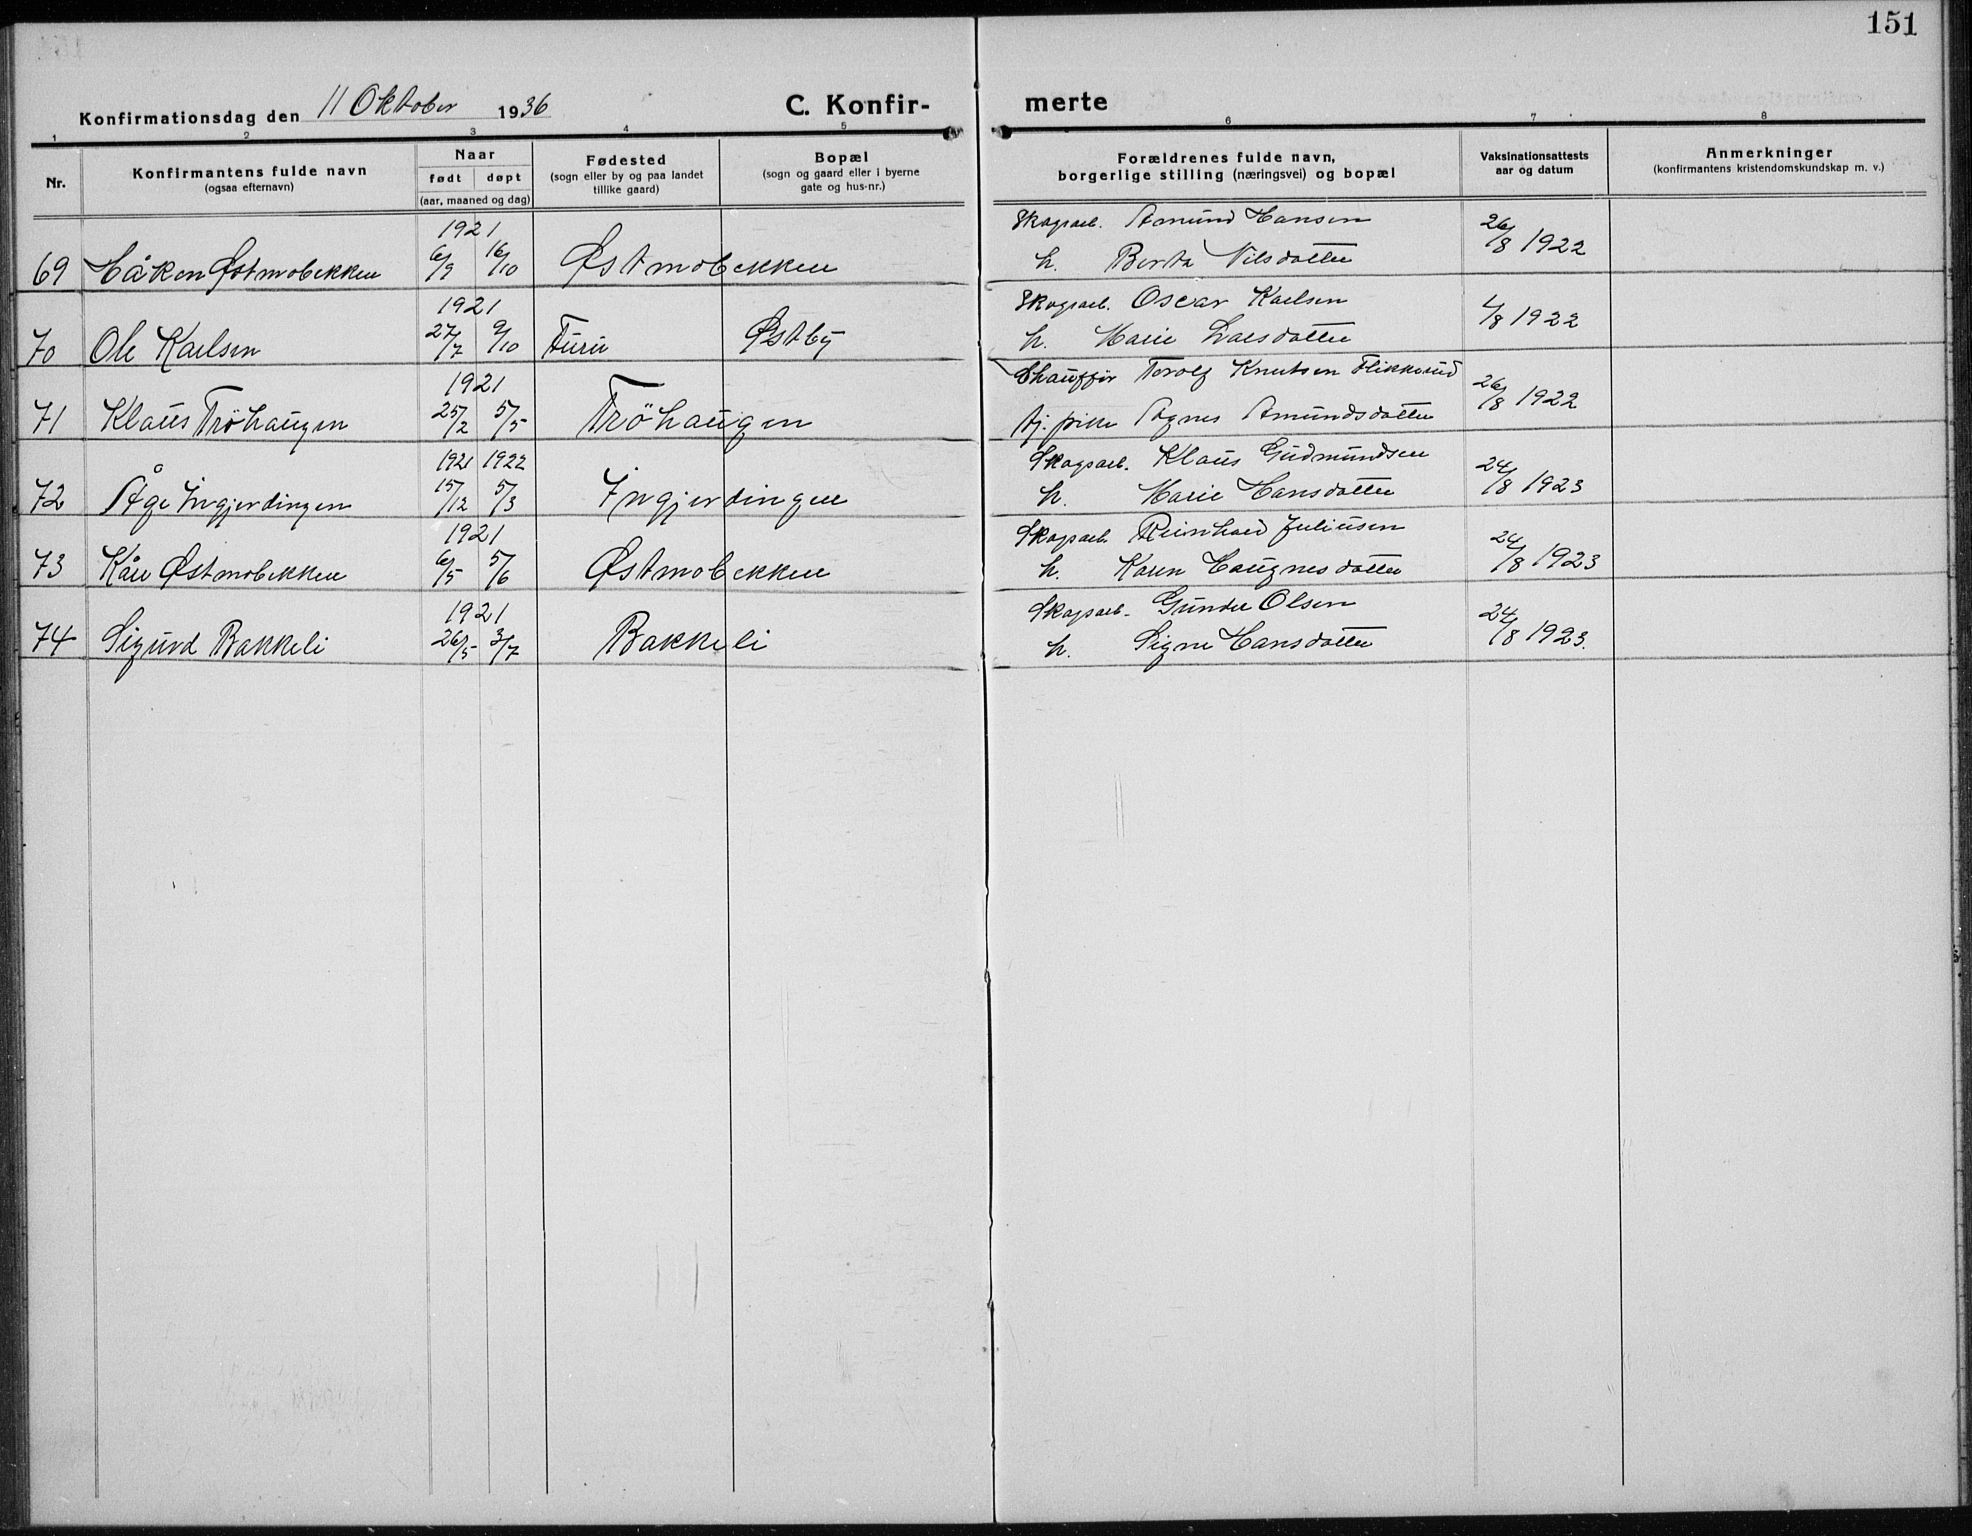 151
Konfirmationsdag den 11 Oktober 1936 C. Konfir- merte
1 2 3 4 5 6 7 8
Nr.
Konfirmantens fulde navn
(ogsaa efternavn)
Naar
født døpt
(aar, maaned og dag)
Fødested
(sogn eller by og paa landet
tillike gaard)
Bopæl
(sogn og gaard eller i byerne
gate og hus-nr.)
Forældrenes fulde navn,
borgerlige stilling (næringsvei) og bopæl
Vaksinationsattests
aar og datum
Anmerkninger
(konfirmantens kristendomskundskap m. v.)
1921 Skogsarb. Amund Hansen
69 Håken Østmobekken 6/9 16/10 Østmobekken h. Berta Nilsdatter 26/8 1922
1921 Skogsarb. Oscar Karlsen
70 Ole Karlsen 27/7 9/10 Furu Østby h. Marie Larsdatter 4/8 1922
1921 Chauffør Torolf Knutsen Flikkerud
71 Klaus Tröhaugen 25/2 5/5 Tröhaugen tj. pike Agnes Amundsdatter 26/8 1922
1921 1922 Skogsarb. Klaus Gudmundsen
72 Åge Ingjerdingen 15/12 5/3 Ingjerdingen h. Marie Hansdatter 24/8 1923
1921 Skogsarb. Reinhard Juliusen
73 Kåre Østmobekken 6/5 5/6 Østmobekken h. Karen Haugnesdatter 24/8 1923
1921 Skogsarb. Gunder Olsen
74 Sigurd Bakkeli 26/5 3/7 Bakkeli h. Signe Hansdatter 24/8 1923.